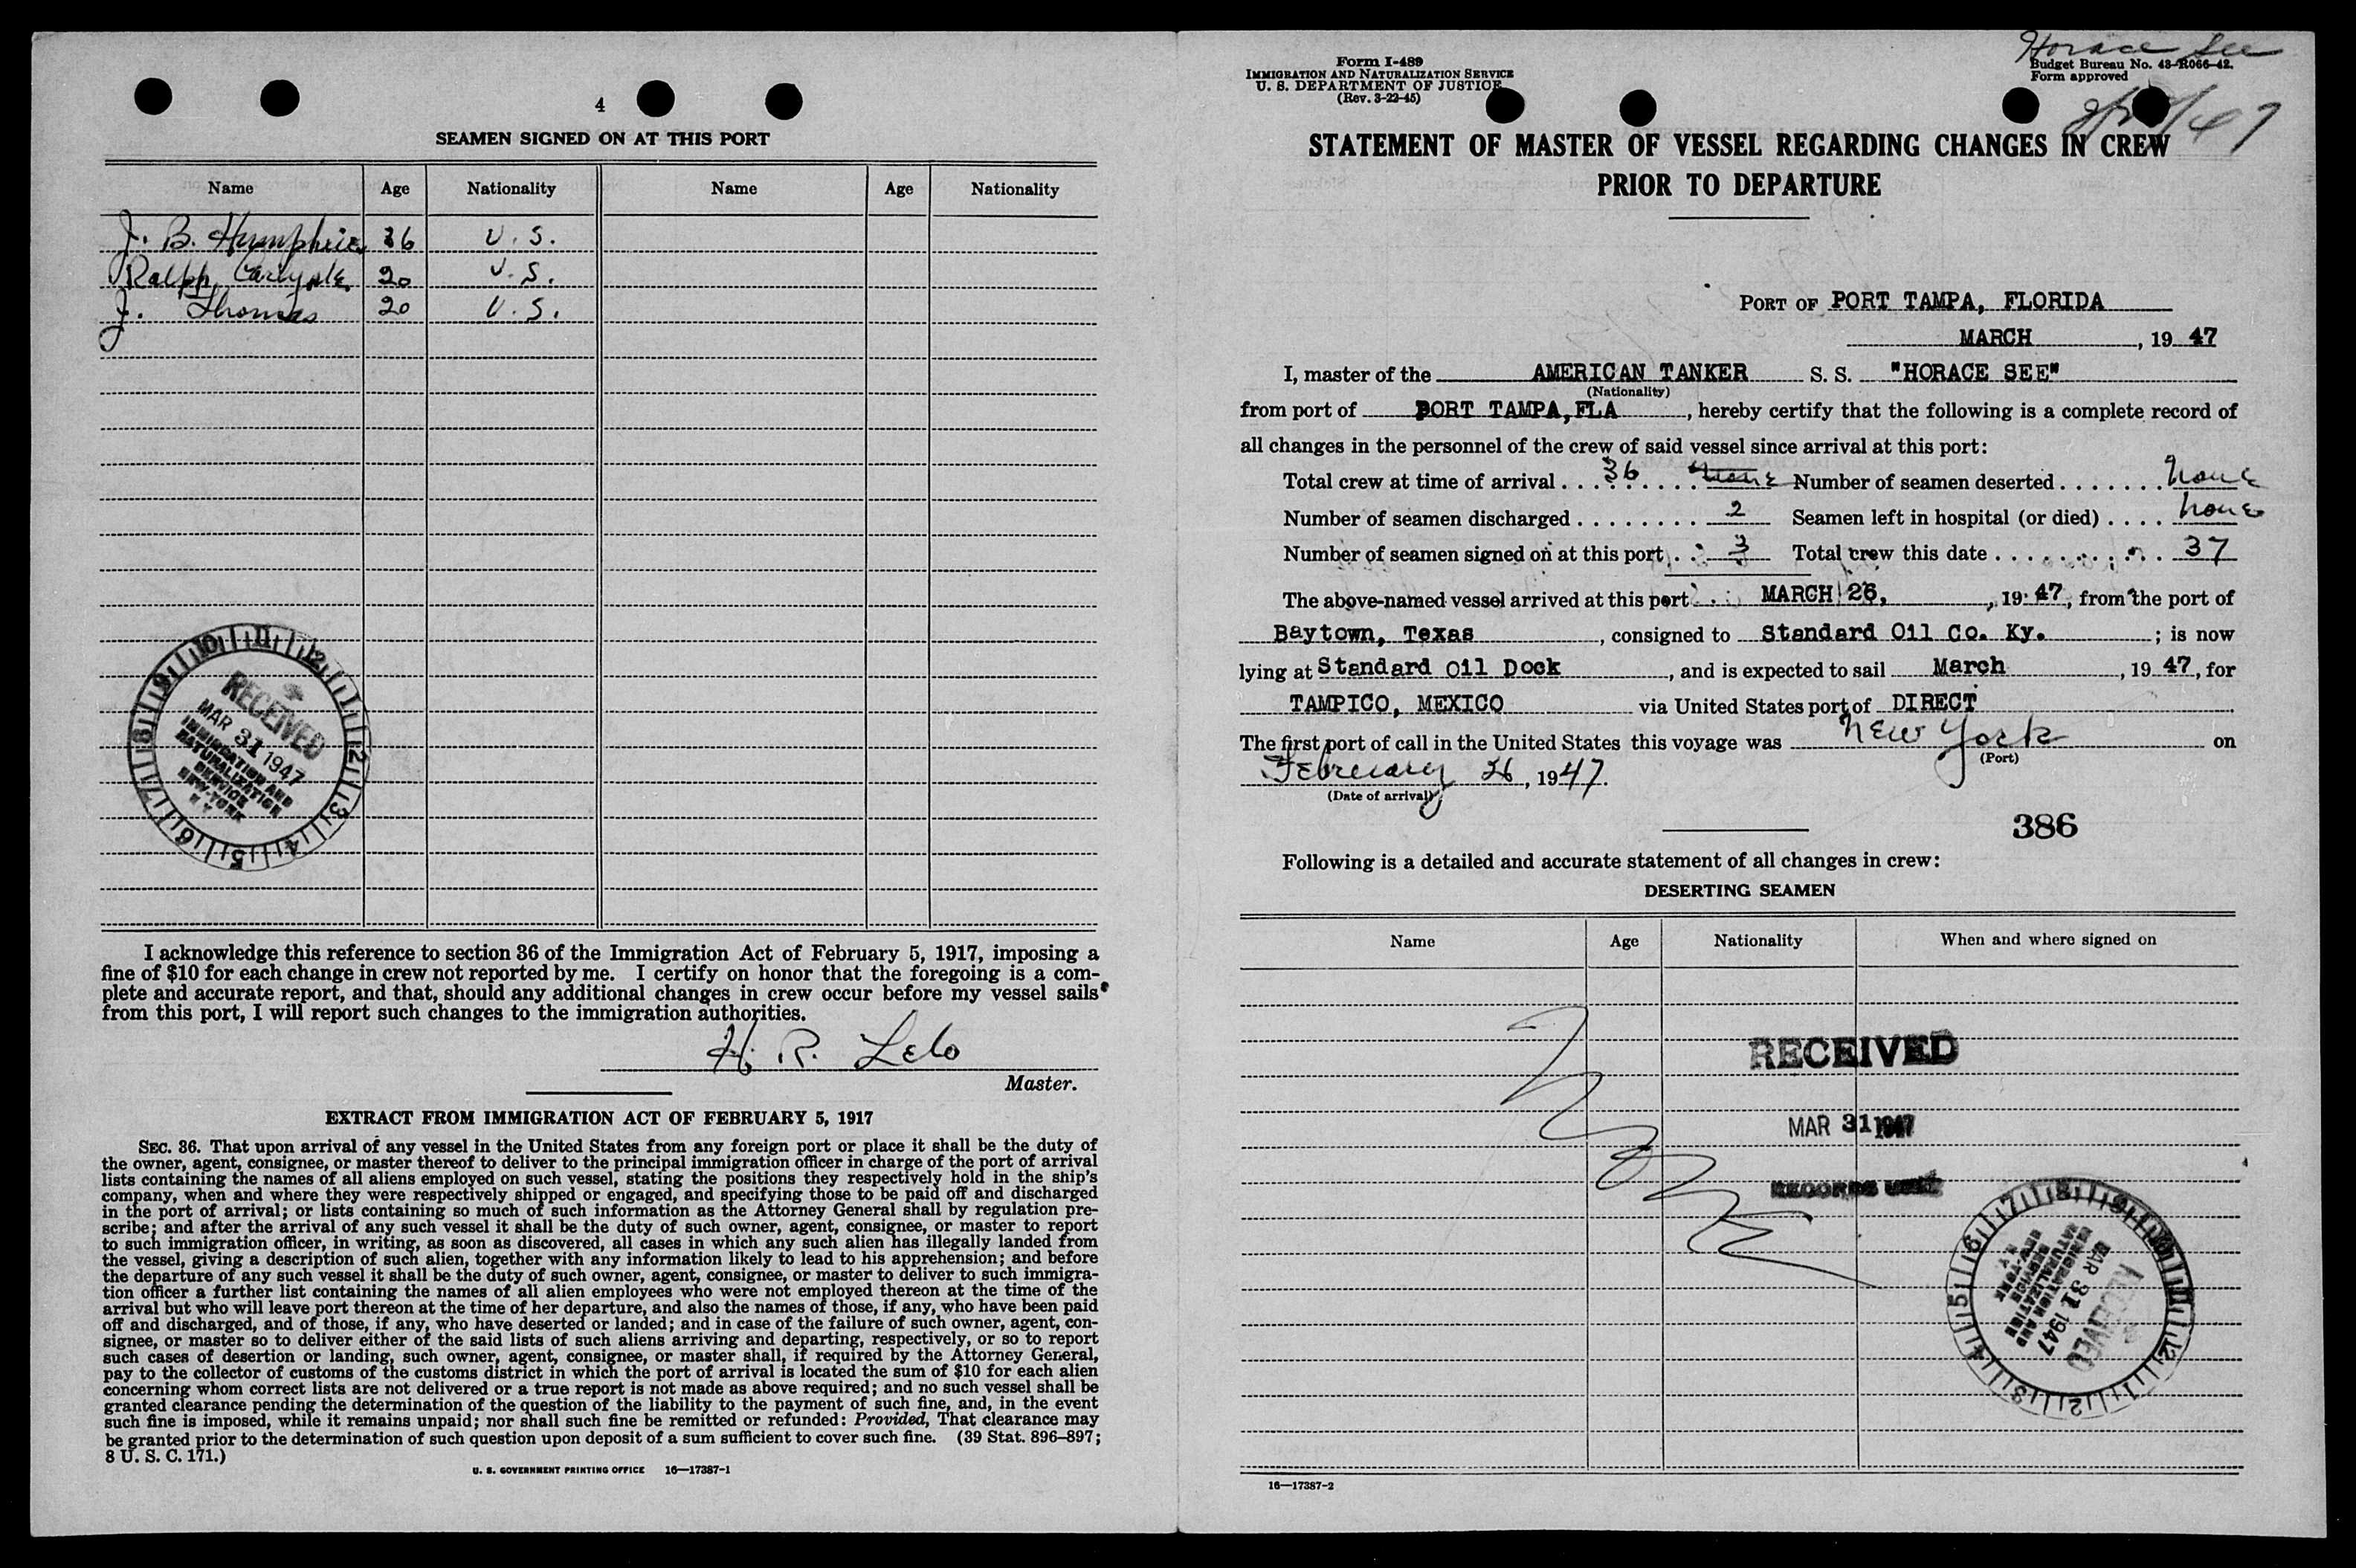 4
SEAMEN SIGNED ON AT THIS PORT
Name Age Nationality Name Age Nationality
J. B. Humphries 36 U. S.
Ralph Carlysle 20 U. S.
J. Thomas 20 U. S.
RECEIVED
MAR 31 1947
IMMIGRATION AND
NATURALIZATION
SERVICE
NEW-YORK
N Y
I acknowledge this reference to section 36 of the Immigration Act of February 5, 1917, imposing a
fine of $10 for each change in crew not reported by me. I certify on honor that the foregoing is a com-
plete and accurate report, and that, should any additional changes in crew occur before my vessel sails
from this port, I will report such changes to the immigration authorities.
H. R. Lebo
Master.
EXTRACT FROM IMMIGRATION ACT OF FEBRUARY 5, 1917
SEC. 36. That upon arrival of any vessel in the United States from any foreign port or place it shall be the duty of
the owner, agent, consignee, or master thereof to deliver to the principal immigration officer in charge of the port of arrival
lists containing the names of all aliens employed on such vessel, stating the positions they respectively hold in the ship's
company, when and where they were respectively shipped or engaged, and specifying those to be paid off and discharged
in the port of arrival; or lists containing so much of such information as the Attorney General shall by regulation pre-
scribe; and after the arrival of any such vessel it shall be the duty of such owner, agent, consignee, or master to report
to such immigration officer, in writing, as soon as discovered, all cases in which any such alien has illegally landed from
the vessel, giving a description of such alien, together with any information likely to lead to his apprehension; and before
the departure of any such vessel it shall be the duty of such owner, agent, consignee, or master to deliver to such immigra-
tion officer a further list containing the names of all alien employees who were not employed thereon at the time of the
arrival but who will leave port thereon at the time of her departure, and also the names of those, if any, who have been paid
off and discharged, and of those, if any, who have deserted or landed; and in case of the failure of such owner, agent, con-
signee, or master so to deliver either of the said lists of such aliens arriving and departing, respectively, or so to report
such cases of desertion or landing, such owner, agent, consignee, or master shall, if required by the Attorney General,
pay to the collector of customs of the customs district in which the port of arrival is located the sum of $10 for each alien
concerning whom correct lists are not delivered or a true report is not made as above required; and no such vessel shall be
granted clearance pending the determination of the question of the liability to the payment of such fine, and, in the event
such fine is imposed, while it remains unpaid; nor shall such fine be remitted or refunded: Provided, That clearance may
be granted prior to the determination of such question upon deposit of a sum sufficient to cover such fine. (39 Stat. 896–897;
8 U. S. C. 171.)
U. S. GOVERNMENT PRINTING OFFICE 16—17387-1
Horace See
Form I-489
IMMIGRATION AND NATURALIZATION SERVICE
U. S. DEPARTMENT OF JUSTICE
(Rev. 3-22-45)
Budget Bureau No. 43-R066-42.
Form approved
STATEMENT OF MASTER OF VESSEL REGARDING CHANGES IN CREW
PRIOR TO DEPARTURE
PORT OF PORT TAMPA, FLORIDA
MARCH , 19 47
I, master of the AMERICAN TANKER S. S. "HORACE SEE"
(Nationality)
from port of PORT TAMPA, FLA , hereby certify that the following is a complete record of
all changes in the personnel of the crew of said vessel since arrival at this port:
Total crew at time of arrival . . . 36 . . . . None Number of seamen deserted . . . . . . . None
Number of seamen discharged . . . . . . . . 2 Seamen left in hospital (or died) . . . . None
Number of seamen signed on at this port . . 3 Total crew this date . . . . . . . . . . 37
The above-named vessel arrived at this port . . MARCH 26, , 19 47, from the port of
Baytown, Texas , consigned to Standard Oil Co. Ky. ; is now
lying at Standard Oil Dock , and is expected to sail March , 19 47, for
TAMPICO, MEXICO via United States port of DIRECT
The first port of call in the United States this voyage was New York on
(Port)
February 26, 1947.
(Date of arrival)
386
Following is a detailed and accurate statement of all changes in crew:
DESERTING SEAMEN
Name Age Nationality When and where signed on
RECEIVED
MAR 31 1947
RECORDS UNIT
None
RECEIVED
MAR 31 1947
IMMIGRATION AND
NATURALIZATION
SERVICE
NEW-YORK
N Y
16—17387-2